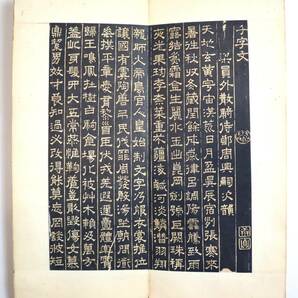 千字文
梁員外散騎侍郎周興嗣次韻
天地玄黃宇宙洪荒日月盈昃辰宿列張寒來
暑往秋收冬藏閏餘成歲律呂調陽雲騰致雨
露結為霜金生麗水玉出崑岡劍號巨闕珠稱
夜光果珍李柰菜重芥薑海鹹河淡鱗潛羽翔
龍師火帝鳥官人皇始制文字乃服衣裳推位
讓國有虞陶唐弔民伐罪周發殷湯坐朝問道
垂拱平章愛育黎首臣伏戎羌遐邇壹體率賓
歸王鳴鳳在樹白駒食場化被草木賴及萬方
蓋此身髮四大五常恭惟鞠養豈敢毀傷女慕
貞絜男效才良知過必改得能莫忘罔談彼短